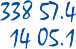 338 57.4
14 05.1